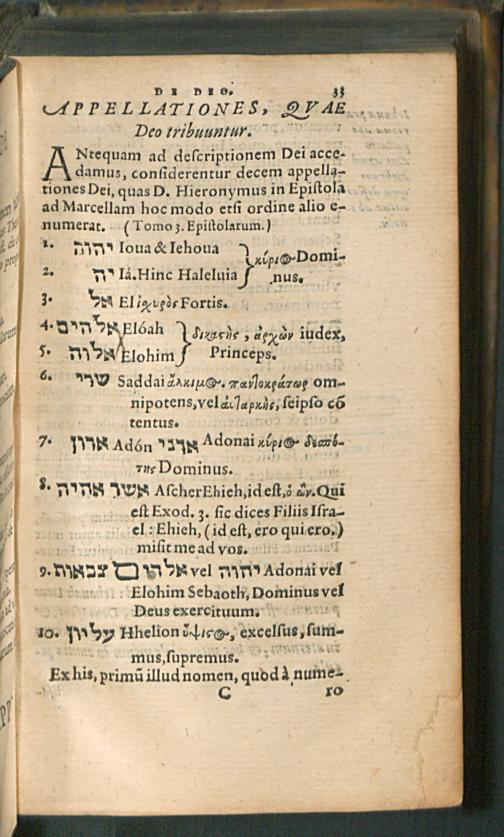 DE DEO. 33
APPELLATIONES, QVAE
Deo tribuuntur.
ANtequam ad descriptionem Dei acce-
damus, considerentur decem appella-
tiones Dei, quas D. Hieronymus in Epistola
ad Marcellam hoc modo etsi ordine alio e-
numerat. (Tomo 3. Epistolarum.)
1. יהוה Ioua & Iehoua } κύριος Domi-
2. יה Iá. Hinc Haleluia } nus.
3. אל El ἰχυρὸς Fortis.
4. אלהים Elóah } δικαςὴς, ἀρχὼν iudex,
5. אלוה Elohim } Princeps.
6. שרי Saddai ἄλκιμος. παντοκράτωρ om-
nipotens, vel αὐταρκὴς, seipso cō
tentus.
7. ארון Adón אדני Adonai κύριος δεσπό-
της Dominus.
8. אשר אהיה Ascher Ehieh, id est, ὁ ὤν. Qui
est Exod. 3. sic dices Filiis Isra-
el: Ehieh, (id est, ero qui ero.)
misit me ad vos.
9. יהוה vel אלהים צבאות Adonai vel
Elohim Sebaoth, Dominus vel
Deus exercituum.
10. עליון Hhelion ὕψιςος, excelsus, sum-
mus, supremus.
Ex his, primū illud nomen, quod à nume-
C ro